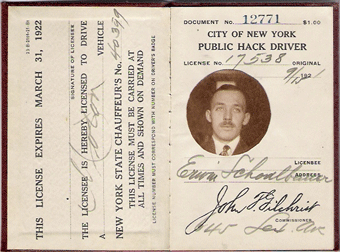 THIS LICENSE EXPIRES MARCH 31, 1922
SIGNATURE OF LICENSEE
THE LICENSEE IS HEREBY LICENSED TO DRIVE
A VEHICLE
NEW YORK STATE CHAUFFEUR'S No. 40399
THIS LICENSE MUST BE CARRIED AT
ALL TIMES AND SHOWN ON DEMAND
LICENSE NUMBER MUST CORRESPOND WITH NUMBER ON DRIVER'S BADGE
DOCUMENT No. 12771 $1.00
CITY OF NEW YORK
PUBLIC HACK DRIVER
LICENSE No. 17538 ORIGINAL
LICENSEE
Erwin
ADDRESS
John F. Gilchrist
COMMISSIONER
645 Ave